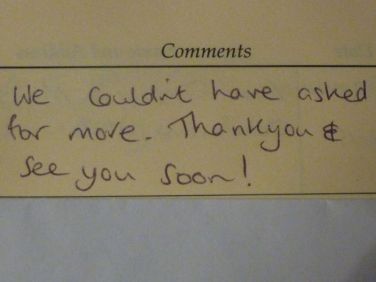 Comments
We Couldn't have asked
for more. Thankyou &
See you soon!